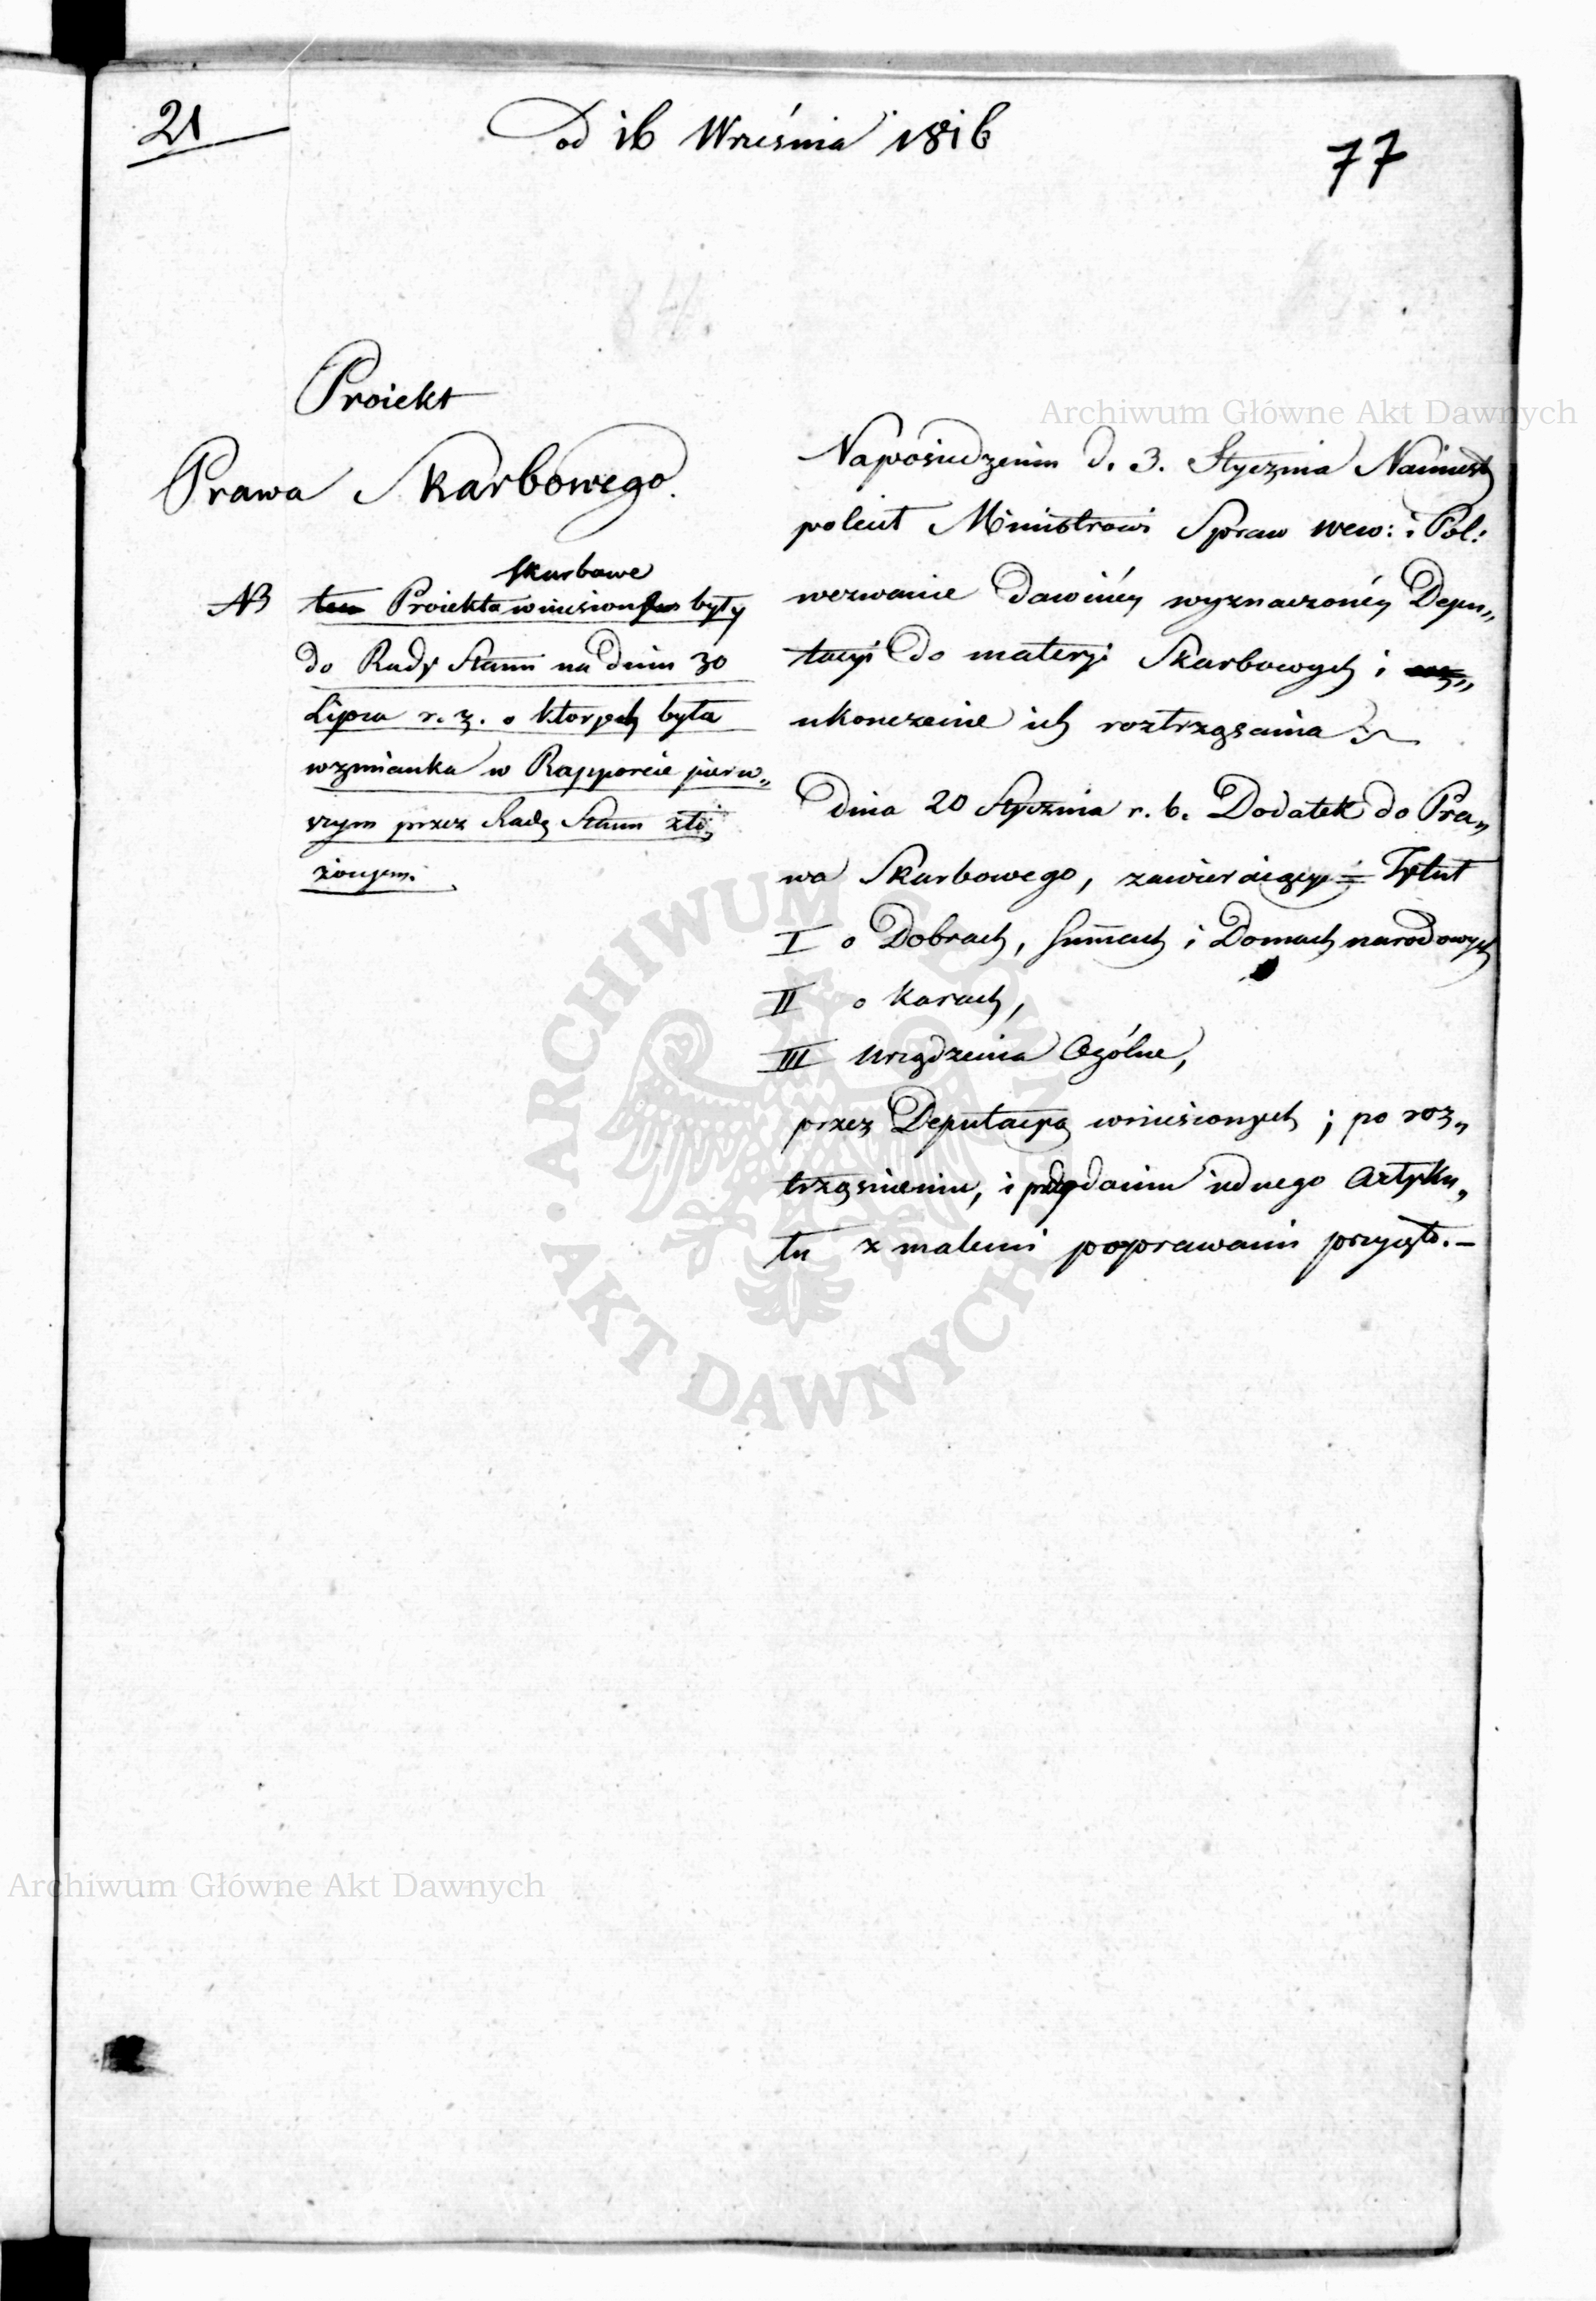 21
Od 16 Września 1816
77
Proiekt
Prawa Skarbowego.
skarbowe
NB ten Proiekta wniesione były
do Rady Stanu na dniu 30
Lipca r. z. o ktorych była
wzmianka w Rapporcie pierw„
szym przez Radę Stanu zło„
żonym.
Na posiedzeniu d. 3. Stycznia Namiest
polecił Ministrowi Spraw wew: i Pol:
wezwanie dawniéy wyznaczonéy Depu„
tacyi do materyi Skarbowych i
ukonczenie ich roztrząsania
Dnia 20 Stycznia r. b. Dodatek do Pra„
wa Skarbowego, zawieraiący = Tytuł
I o Dobrach, Summach i Domach narodowych
II o Karach,
III Urządzenia Ogólne,
przez Deputacyą wniesionych ; po roz„
trząśnieniu, i dodaniu iednego Artyku„
łu z małemi poprawami przyięto. —
Archiwum Główne Akt Dawnych
Archiwum Główne Akt Dawnych
ARCHIWUM GŁÓWNE · AKT DAWNYCH ·